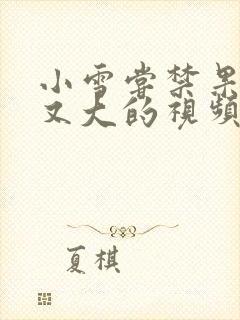 小雪嘗禁果
又大的視頻
夏棋